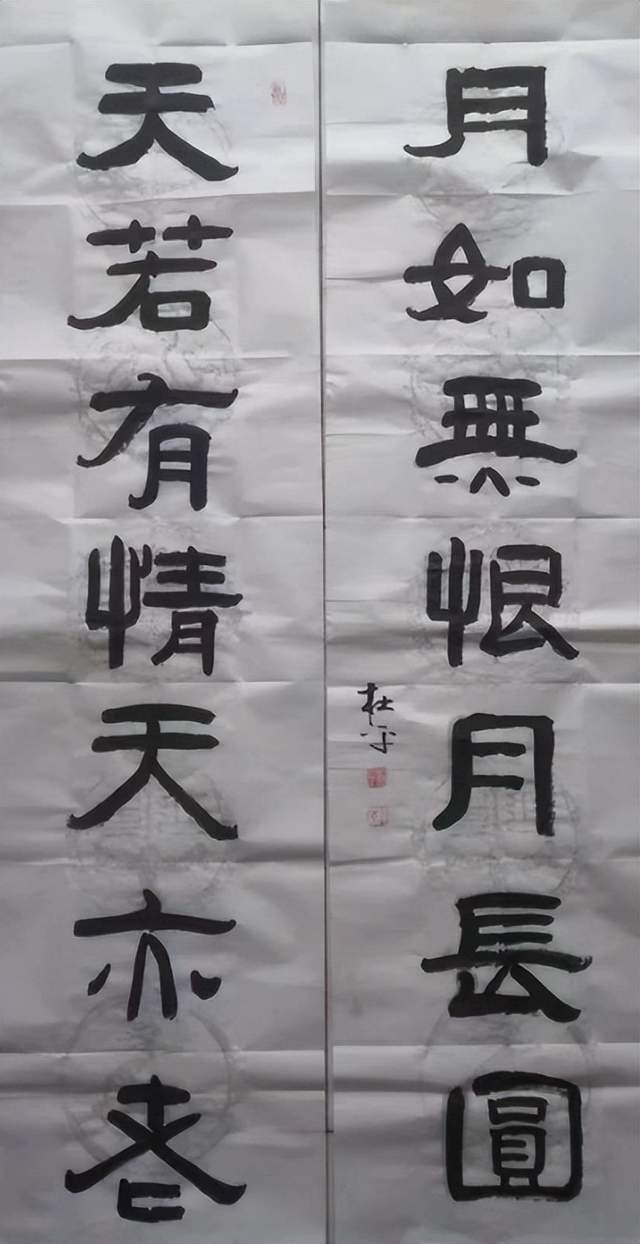 天若有情天亦老
月如無恨月長圓
杜平